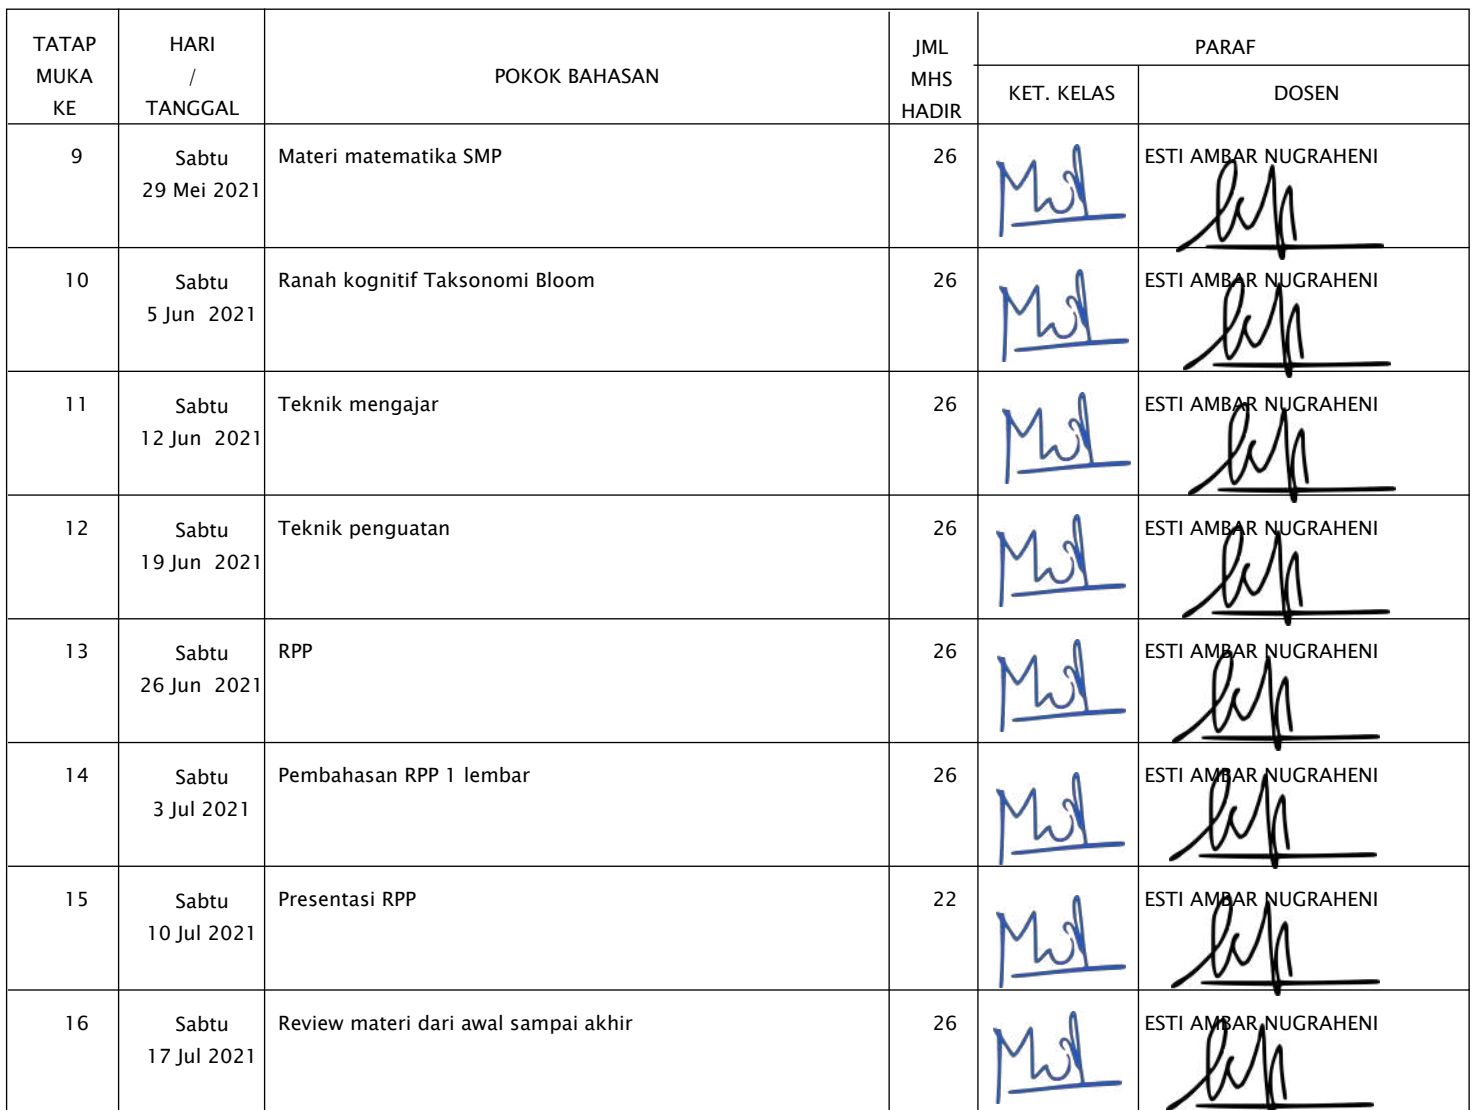 TATAP MUKA KE
HARI / TANGGAL
POKOK BAHASAN
JML MHS HADIR
PARAF
KET. KELAS
DOSEN
9
Sabtu
29 Mei 2021
Materi matematika SMP
26
ESTI AMBAR NUGRAHENI
10
Sabtu
5 Jun 2021
Ranah kognitif Taksonomi Bloom
26
ESTI AMBAR NUGRAHENI
11
Sabtu
12 Jun 2021
Teknik mengajar
26
ESTI AMBAR NUGRAHENI
12
Sabtu
19 Jun 2021
Teknik penguatan
26
ESTI AMBAR NUGRAHENI
13
Sabtu
26 Jun 2021
RPP
26
ESTI AMBAR NUGRAHENI
14
Sabtu
3 Jul 2021
Pembahasan RPP 1 lembar
26
ESTI AMBAR NUGRAHENI
15
Sabtu
10 Jul 2021
Presentasi RPP
22
ESTI AMBAR NUGRAHENI
16
Sabtu
17 Jul 2021
Review materi dari awal sampai akhir
26
ESTI AMBAR NUGRAHENI